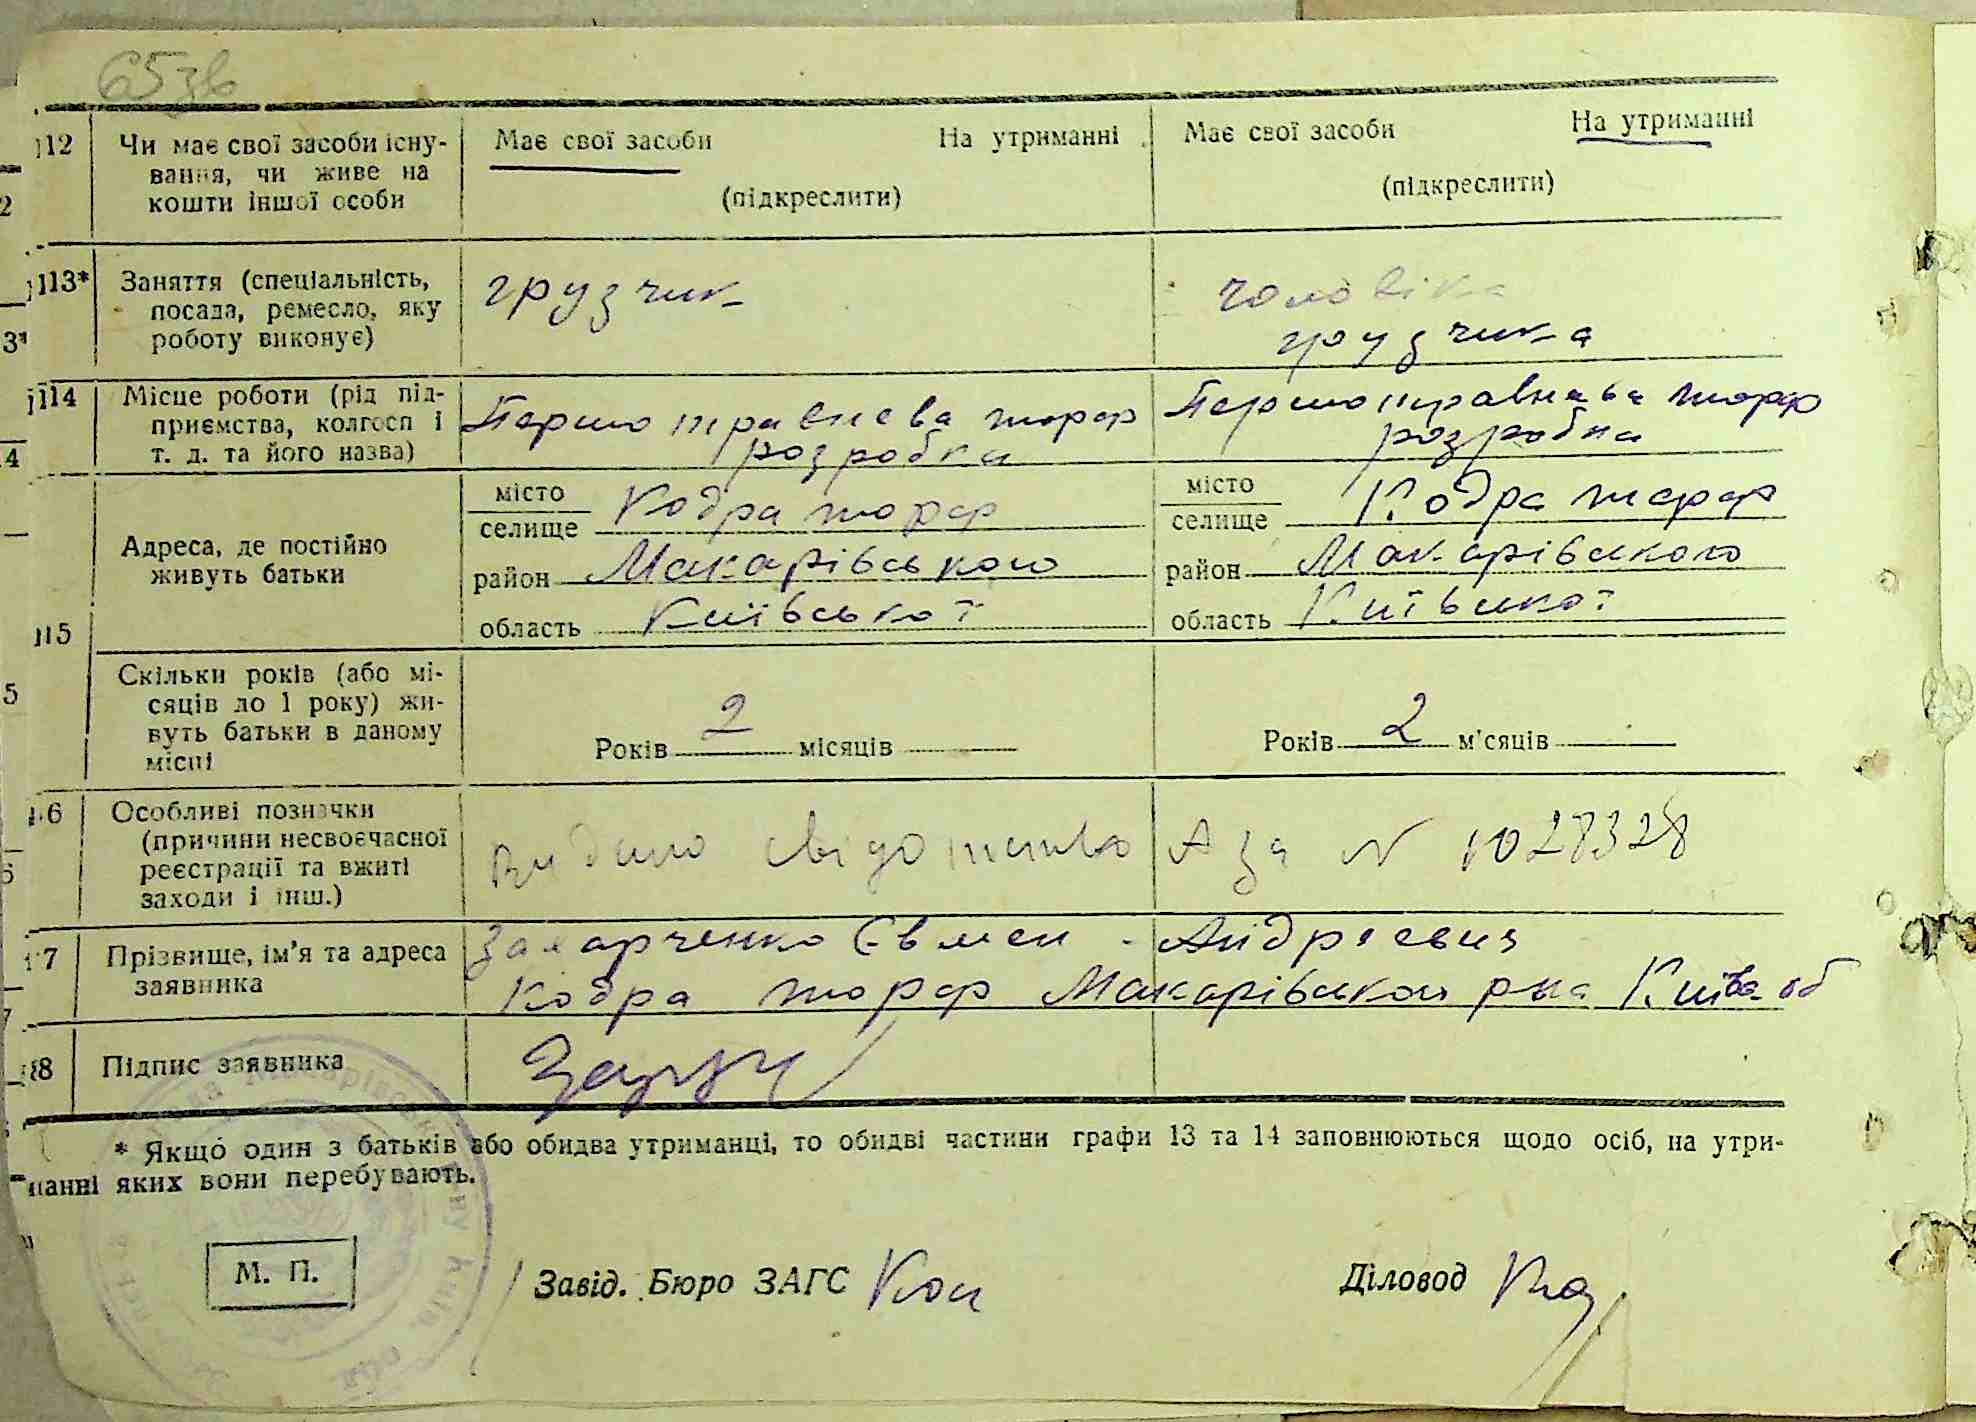 65зв
12 Чи має свої засоби існу- Має свої засоби На утриманні Має свої засоби На утриманні
вання, чи живе на
кошти іншої особи (підкреслити) (підкреслити)
13* Заняття (спеціальність, грузчик чоловіка
посада, ремесло, яку грузчика
роботу виконує)
14 Місце роботи (рід під- Першотравнева торф Першотравнева торф
приємства, колгосп і розробка розробка
т. д. та його назва)
місто Кодра торф місто Кодра торф
селище селище
Адреса, де постійно
живуть батьки район Макарівського район Макарівського
область Київської область Київської
15
Скільки років (або мі-
сяців до 1 року) жи-
вуть батьки в даному Років 2 місяців Років 2 м'сяців
місці
16 Особливі позначки
(причини несвоєчасної Видано свідотство А за N 1028328
реєстрації та вжиті
заходи і інш.)
17 Прізвище, ім'я та адреса Захарченко Євмен Андреевич
заявника Кодра торф Макарівськог р-на Київ об
18 Підпис заявника
* Якщо один з батьків або обидва утриманці, то обидві частини графи 13 та 14 заповнюються щодо осіб, на утри-
манні яких вони перебувають.
М. П. Завід. Бюро ЗАГС Діловод